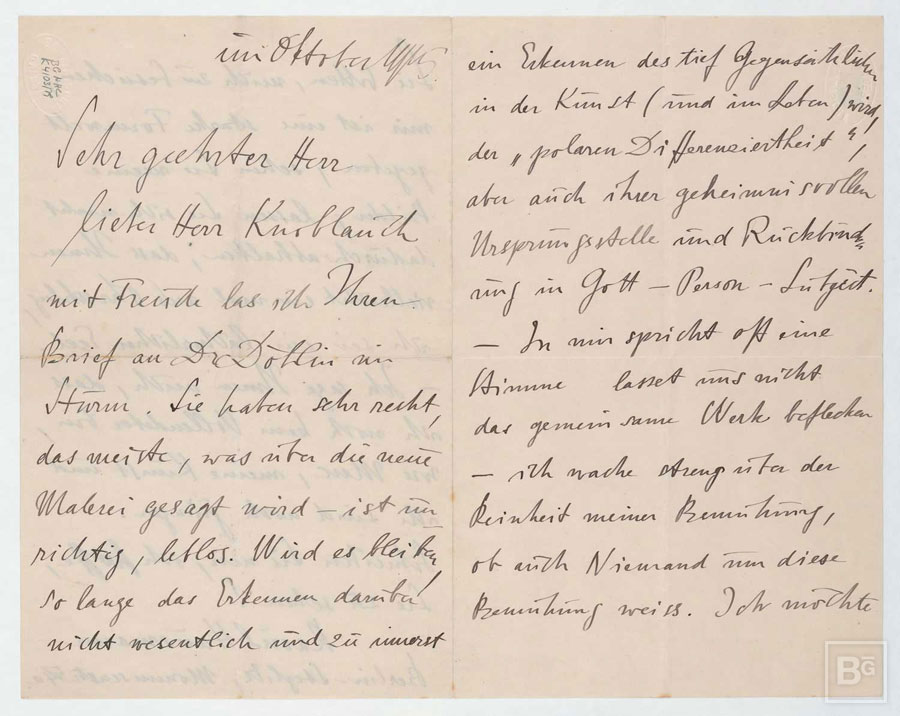 im Oktober
Sehr geehrter Herr
lieber Herr Knoblauch
mit Freude las ich Ihren
Brief an Dr Döblin im
Sturm. Sie haben sehr recht,
das meiste, was über die neue
Malerei gesagt wird – ist un
richtig, leblos. Wird es bleiben,
so lange das Erkennen darüber
nicht wesentlich und zu innerst
ein Erkennen des tief Gegensätzlichen
in der Kunst (und im Leben) wird,
der „polaren Differenziertheit",
aber auch ihrer geheimnisvollen
Ursprungsstelle und Rückbind=
ung in Gott – Person –
– In mir spricht oft eine
Stimme lasset uns nicht
das gemeinsame Werk beflecken
– ich wache streng über der
Reinheit meiner Bemühung,
ob auch Niemand um diese
Bemühung weiss. Ich möchte
BG